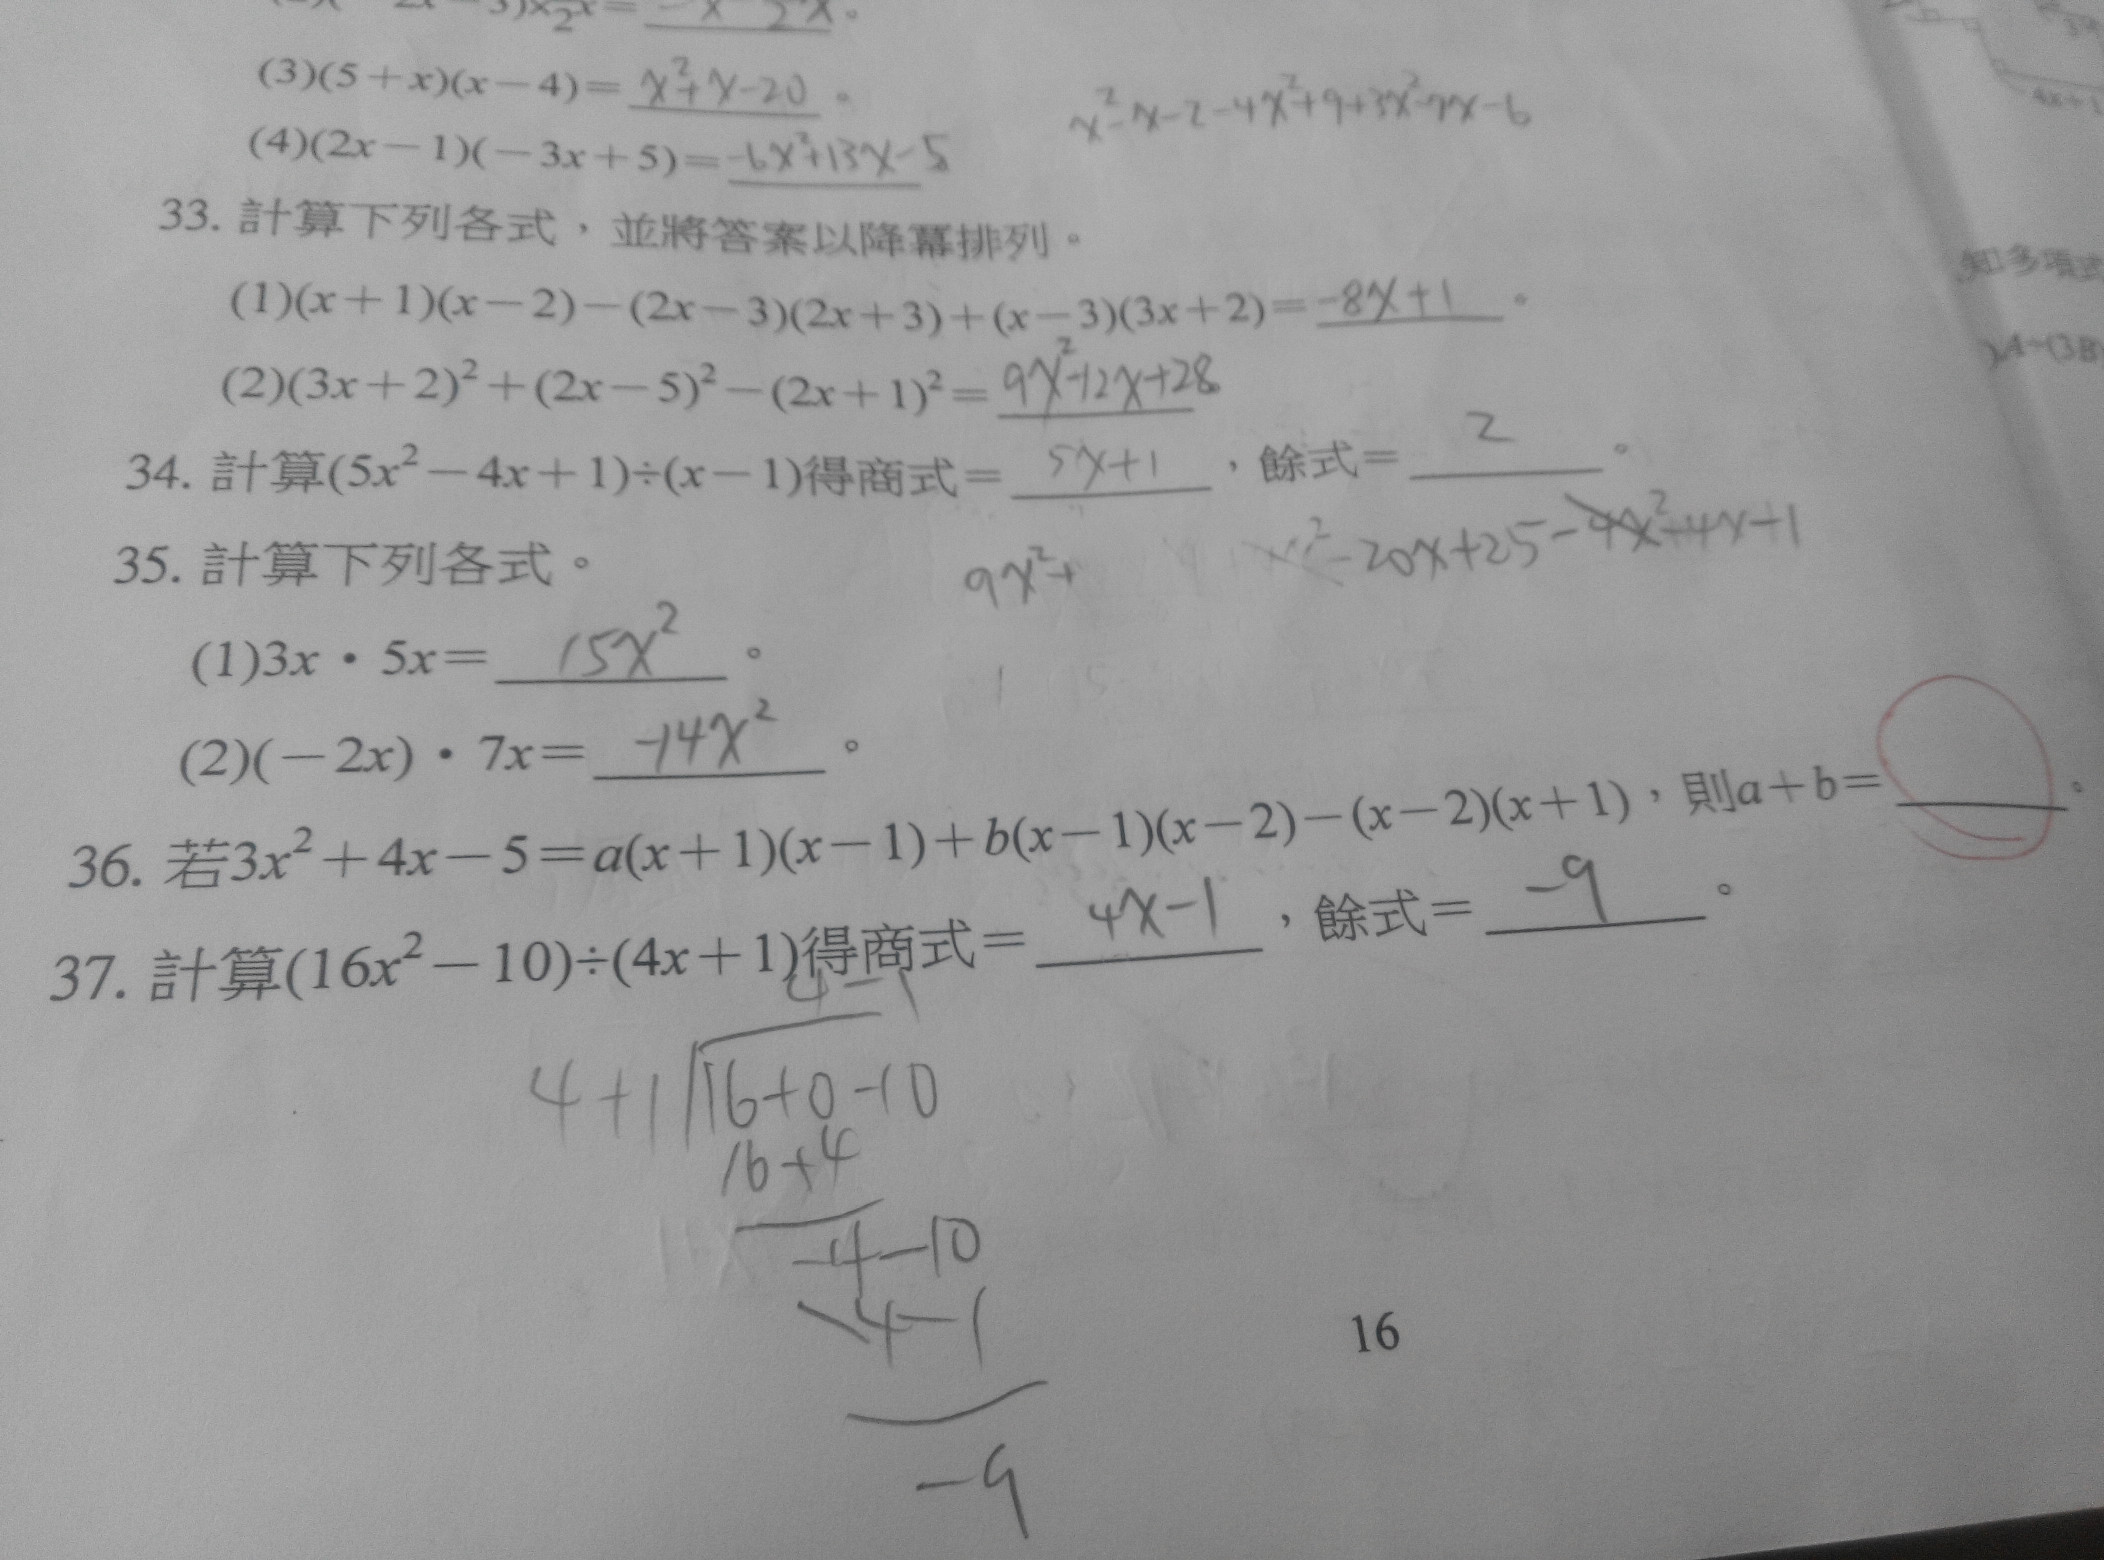 (3)(5+x)(x-4)= x²+x-20 。
x²-x-2-4x²+9+3x²-7x-6
(4)(2x-1)(-3x+5)= -6x²+13x-5
33. 計算下列各式，並將答案以降冪排列。
(1)(x+1)(x-2)-(2x-3)(2x+3)+(x-3)(3x+2)= -8x+1 。
(2)(3x+2)²+(2x-5)²-(2x+1)²= 9x²-12x+28
34. 計算(5x²-4x+1)÷(x-1)得商式= 5x+1 ，餘式= 2 。
35. 計算下列各式。
9x²+
-20x+25-4x²+4x+1
(1)3x·5x= 15x² 。
(2)(-2x)·7x= -14x² 。
36. 若3x²+4x-5=a(x+1)(x-1)+b(x-1)(x-2)-(x-2)(x+1)，則a+b= 。
37. 計算(16x²-10)÷(4x+1)得商式= 4x-1 ，餘式= -9 。
4-1
4+1 16+0-10
16+4
-4-10
-4-1
-9
16
知多項式
4x+1